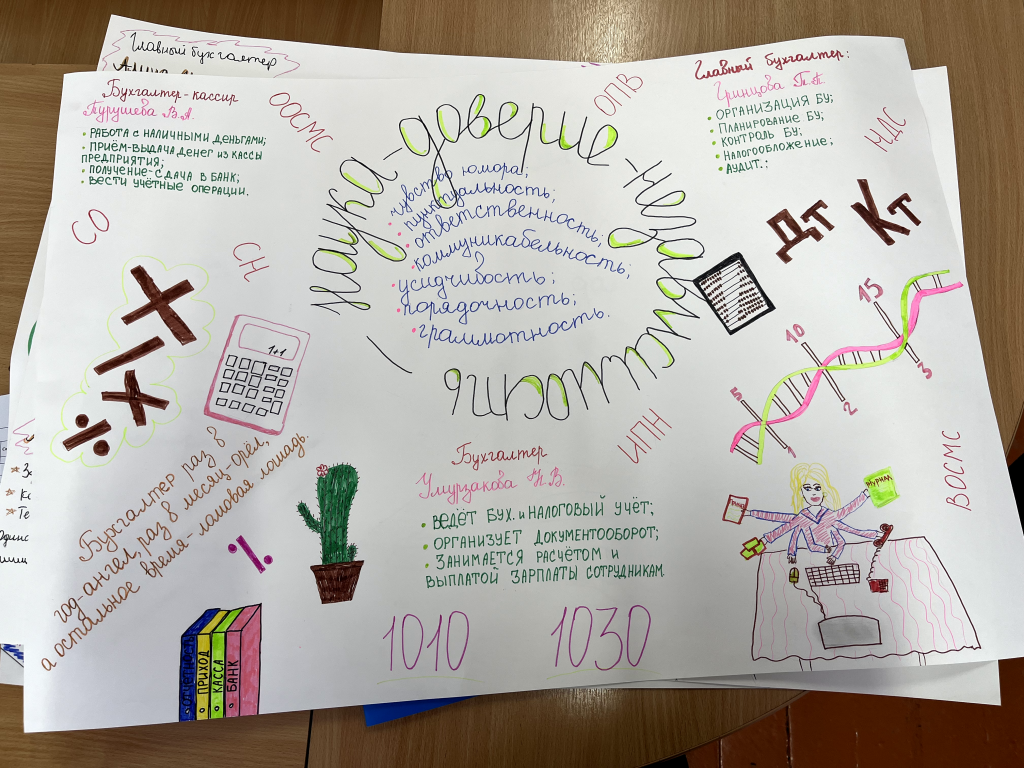 Главный бухгалтер
Бухгалтер-кассир
Пурушева В.А.
• РАБОТА С НАЛИЧНЫМИ ДЕНЬГАМИ;
• ПРИЁМ-ВЫДАЧА ДЕНЕГ ИЗ КАССЫ
ПРЕДПРИЯТИЯ;
• ПОЛУЧЕНИЕ-СДАЧА В БАНК;
• ВЕСТИ УЧЁТНЫЕ ОПЕРАЦИИ.
ООСМС
ОПВ
Главный бухгалтер:
Гринцова Т.П.
• ОРГАНИЗАЦИЯ БУ;
• ПЛАНИРОВАНИЕ БУ;
• КОНТРОЛЬ БУ;
• НАЛОГООБЛОЖЕНИЕ;
• АУДИТ.:
НДС
СО
СН
наука-доверие-независимость
чувство юмора;
• пунктуальность;
• ответственность;
• коммуникабельность;
• усидчивость;
• порядочность;
• грамотность.
Дт Кт
+
-
×
÷
1+1
5 10 15
1 2 3
ИПН
ВОСМС
Бухгалтер раз в
год-ангел, раз в месяц-орёл,
а остальное время-ломовая лошадь.
%
Бухгалтер
Умурзакова Н.В.
• ВЕДЁТ БУХ. И НАЛОГОВЫЙ УЧЁТ;
• ОРГАНИЗУЕТ ДОКУМЕНТООБОРОТ;
• ЗАНИМАЕТСЯ РАСЧЁТОМ И
ВЫПЛАТОЙ ЗАРПЛАТЫ СОТРУДНИКАМ
ЖУРНАЛ
ПРИХОД
КАССА
БАНК
1010
1030